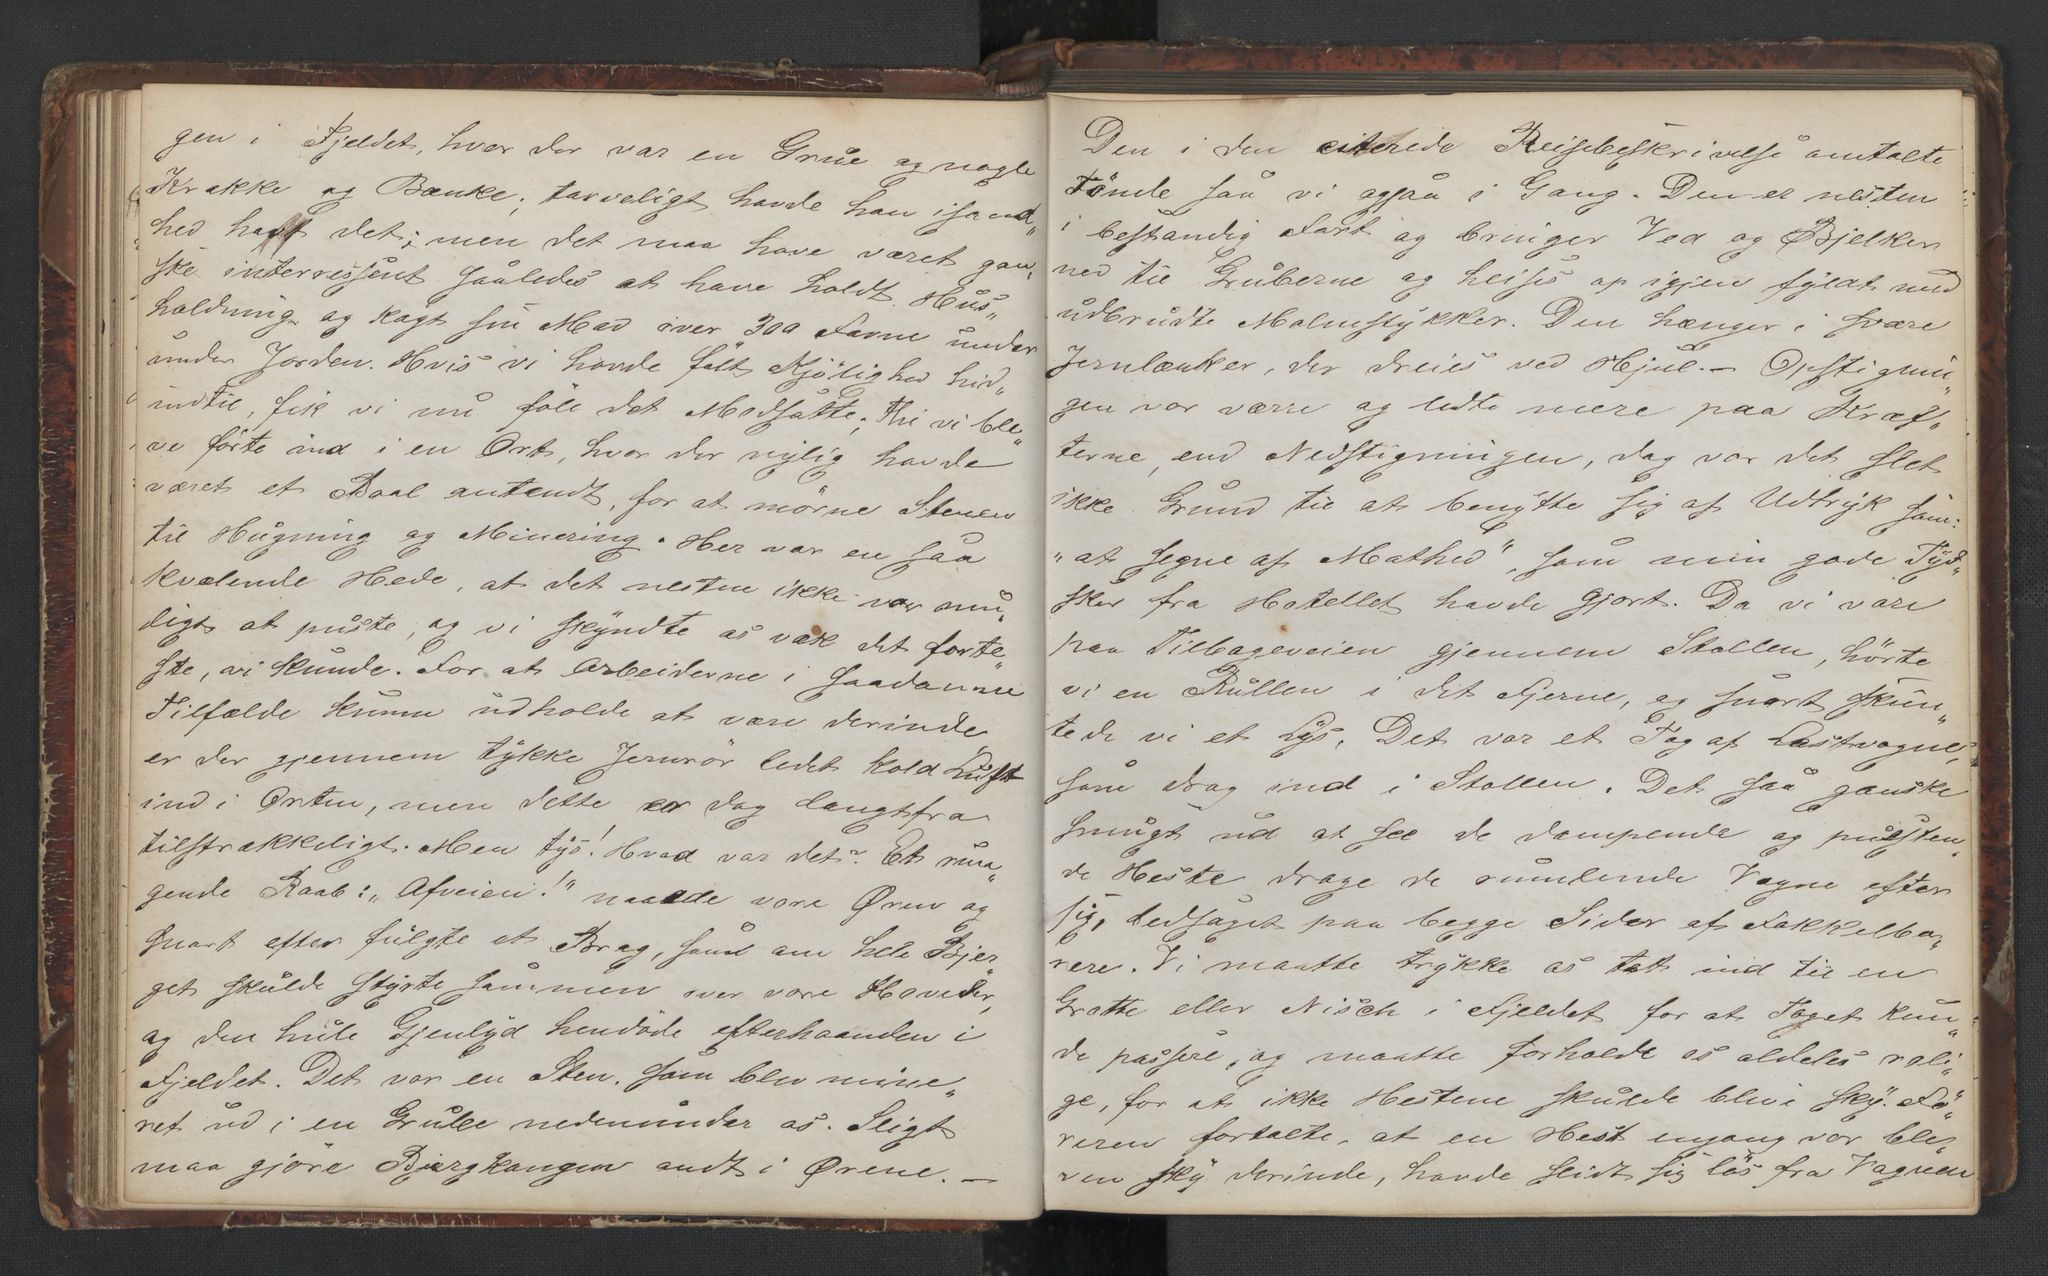 gen i Fjeldet, hvor der var en Grue og nogle
Krakke og Bænke; tarveligt havde han isand„
hed havt det; men det maa have været gan„
ske interressent saaledes at have holdt Hus„
holdning og kogt sin Mad over 300 Favne under
under Jorden. Hvis vi havde følt Kjølighed hid„
indtil, fik vi nu føle det Modsatte; thi vi ble„
ve førte ind i en Ort, hvor der nylig havde
været et Baal antændt, for at mørne Stenen
til Hugning og Minering. Her var en saa
kvælende Hede, at det næsten ikke var mu„
ligt at puste, og vi skyndte os væk det forte„
ste, vi kunde. For at Arbeiderne i saadanne
Tilfælde kunne udholde at være derinde
er der gjennem tykke Jernrör ledet kold Luft
ind i Orten, men dette er dog langtfra
tilstrækkeligt. Men tys! Hvad var det? Et run„
gende Raab: „Afveien!" naaede vore Øren og
snart efter fulgte et Brag, som om hele Bjer„
get skulde styrte sammen over vore Hoveder,
og den hule Gjenlyd hendøde efterhaanden i
Fjeldet. Det var en Sten, som blev mine„
ret ud i en Grube nedenunder os. Sligt
maa gjøre Bjergkongen ondt i Ørene. —
Den i den citerede Reisebeskrivelse omtalte
Tønde saa vi ogsaa i Gang. Den er næsten
i bestandig Fart og bringer Ved og Bjelker
ned til Gruberne og heises op igjen fyldt med
udbrudte Malmstykker. Den hænger i svære
Jernlænker, der dreies ved Hjul. — Opstignin„
gen var værre og ledte mere paa Kræf„
terne, end Nedstigningen, dog var det slet
ikke Grund til at benytte sig af Udtryk som:
„at segne af Mathed", som min gode Tyd„
sker fra Hotellet havde gjort. Da vi vare
paa Tilbageveien gjennem Stollen, hörte
vi en Rullen i det Fjerne, og snart skim„
tede vi et Lys. Det var et Tog af Lastvogne,
som drog ind i Stollen. Det saa ganske
smugt ud at see de dampende og pusten„
de Heste drage de rumlende Vogne efter
sig, ledsaget paa begge Sider af Fakkelbæ„
rere. Vi maatte trykke os tæt ind til en
Grotte eller Nisch i Fjeldet for at Toget kun„
de passere, og maatte forholde os aldeles roli„
ge, for at ikke Hestene skulde blive sky. Fø„
reren fortalte, at en Hest engang var ble„
ven sky derinde, havde slidt sig løs fra Vognen